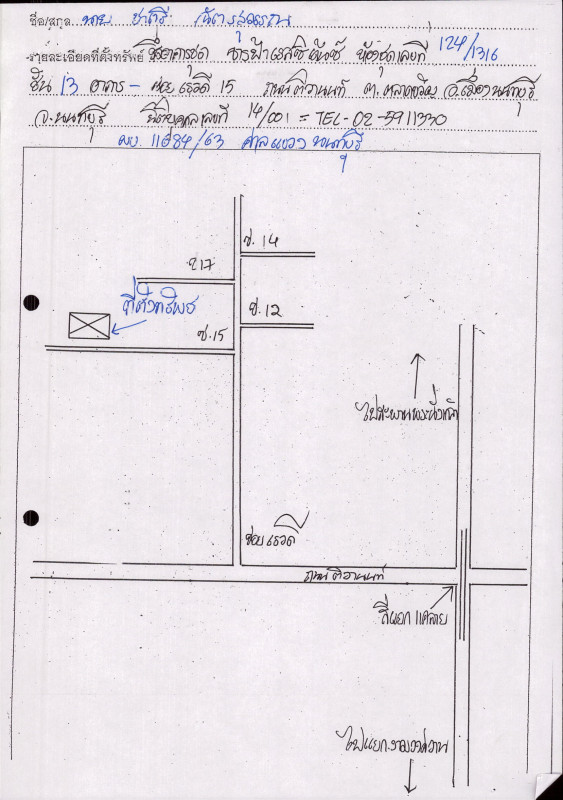 ชื่อ/สกุล นาย ชาตรี
รายละเอียดที่ตั้งทรัพย์ ชื่ออาคารชุด ธารฟ้าเรสซิเด้นซ์ ห้องชุดเลขที่ 124/1316
ชั้น 13 อาคาร - ซอย เรวดี 15 ถนน ติวานนท์ ต. ตลาดขวัญ อ.เมืองนนทบุรี
จ.นนทบุรี นิติบุคคลเลขที่ 14/001 = TEL-02-5911330
ผบ. 11684/63 ศาลแขวง นนทบุรี
ซ. 14
ซ.17
ที่ตั้งทรัพย์
ซ. 12
ซ.15
ไปสะพานพระนั่งเกล้า
ซอย เรวดี
ถนน ติวานนท์
สี่แยก แคราย
ไปแยก งามวงศ์วาน